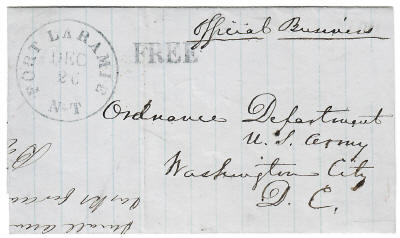 Official Business
FORT LARAMIE
DEC
26
N-T
FREE
Ordnance Department
U. S. Army
Washington City
D. C.